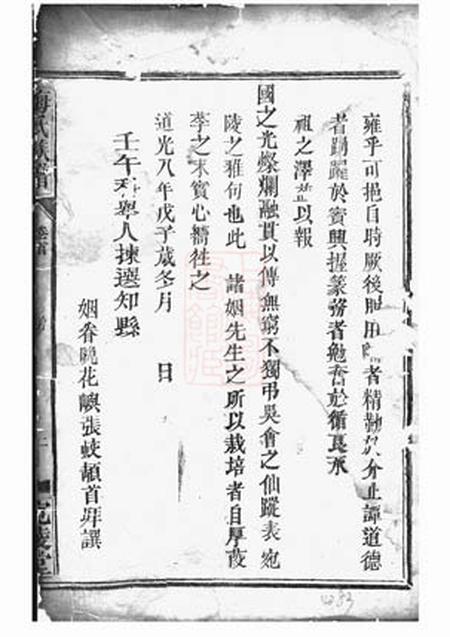 雍乎可挹自時厥後服用者精勤於介止譚道德
者踴躍於賓興握篆務者勉奮於循良永
祖之澤並以報
國之光燦爛融貫以傳無窮不獨弔吳會之仙蹤表宛
陵之雅句也此 諸姻先生之所以栽培者自厚葭
莩之末實心嚮徃之
道光八年戊子歲冬月 日
壬午科舉人揀選知縣
姻眷晚花嶼張蛟頓首拜譔
梅氏族譜
卷首
宛陵堂
4283